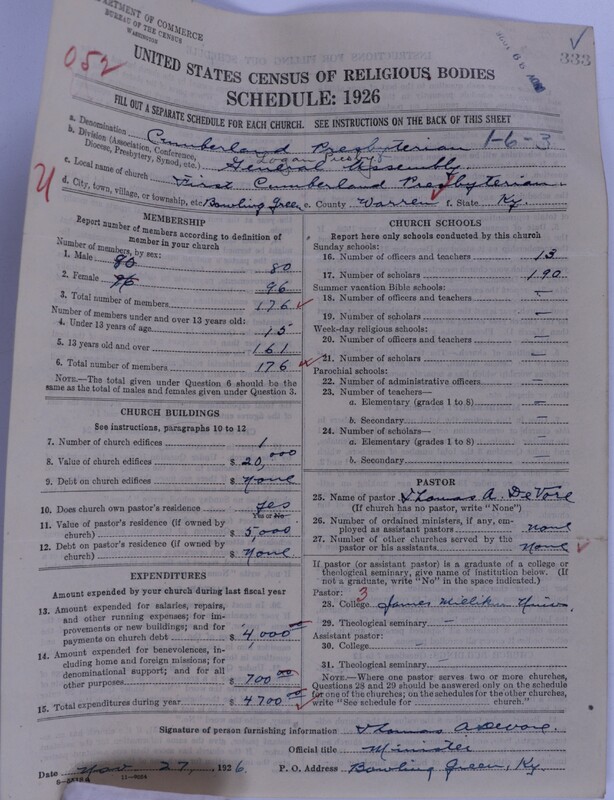 DEPARTMENT OF COMMERCE
BUREAU OF THE CENSUS
WASHINGTON
052
333
UNITED STATES CENSUS OF RELIGIOUS BODIES
SCHEDULE: 1926
FILL OUT A SEPARATE SCHEDULE FOR EACH CHURCH. SEE INSTRUCTIONS ON THE BACK OF THIS SHEET
a. Denomination Cumberland Presbyterian 1-6-3
b. Division (Association, Conference, Diocese, Presbytery, Synod, etc.) Logan Presby General Assembly
c. Local name of church First Cumberland Presbyterian
d. City, town, village, or township, etc. Bowling Green e. County Warren f. State Ky.
MEMBERSHIP
Report number of members according to definition of member in your church
Number of members, by sex:
1. Male 80 80
2. Female 96 96
3. Total number of members 176
Number of members under and over 13 years old:
4. Under 13 years of age 15
5. 13 years old and over 161
6. Total number of members 176
NOTE.—The total given under Question 6 should be
the same as the total of males and females given under Question 3.
CHURCH BUILDINGS
See instructions, paragraphs 10 to 12
7. Number of church edifices 1
8. Value of church edifices $ 20,000
9. Debt on church edifices $ none
10. Does church own pastor's residence yes
Yes or No
11. Value of pastor's residence (if owned by
church) $ 5,000
12. Debt on pastor's residence (if owned by
church) $ none
EXPENDITURES
Amount expended by your church during last fiscal year
13. Amount expended for salaries, repairs,
and other running expenses; for im-
provements or new buildings; and for
payments on church debt $ 4,000 00
14. Amount expended for benevolences,
including home and foreign missions; for
denominational support; and for all
other purposes $ 700 00
15. Total expenditures during year $ 4700 00
CHURCH SCHOOLS
Report here only schools conducted by this church
Sunday schools:
16. Number of officers and teachers 13
17. Number of scholars 190
Summer vacation Bible schools:
18. Number of officers and teachers —
19. Number of scholars —
Week-day religious schools:
20. Number of officers and teachers —
21. Number of scholars —
Parochial schools:
22. Number of administrative officers —
23. Number of teachers—
a. Elementary (grades 1 to 8) —
b. Secondary —
24. Number of scholars—
a. Elementary (grades 1 to 8) —
b. Secondary —
PASTOR
25. Name of pastor Thomas A. DeVore
(If church has no pastor, write "None")
26. Number of ordained ministers, if any, em-
ployed as assistant pastors none
27. Number of other churches served by the
pastor or his assistants none
If pastor (or assistant pastor) is a graduate of a college or
theological seminary, give name of institution below. (If
not a graduate, write "No" in the space indicated.)
Pastor: 3
28. College James Millikin Univ.
29. Theological seminary —
Assistant pastor:
30. College —
31. Theological seminary —
NOTE.—Where one pastor serves two or more churches,
Questions 28 and 29 should be answered only on the schedule
for one of the churches; on the schedules for the other churches,
write "See schedule for church."
Signature of person furnishing information Thomas A. DeVore
Official title Minister
Date Nov. 27, 1926. P. O. Address Bowling Green, Ky.
11-9054